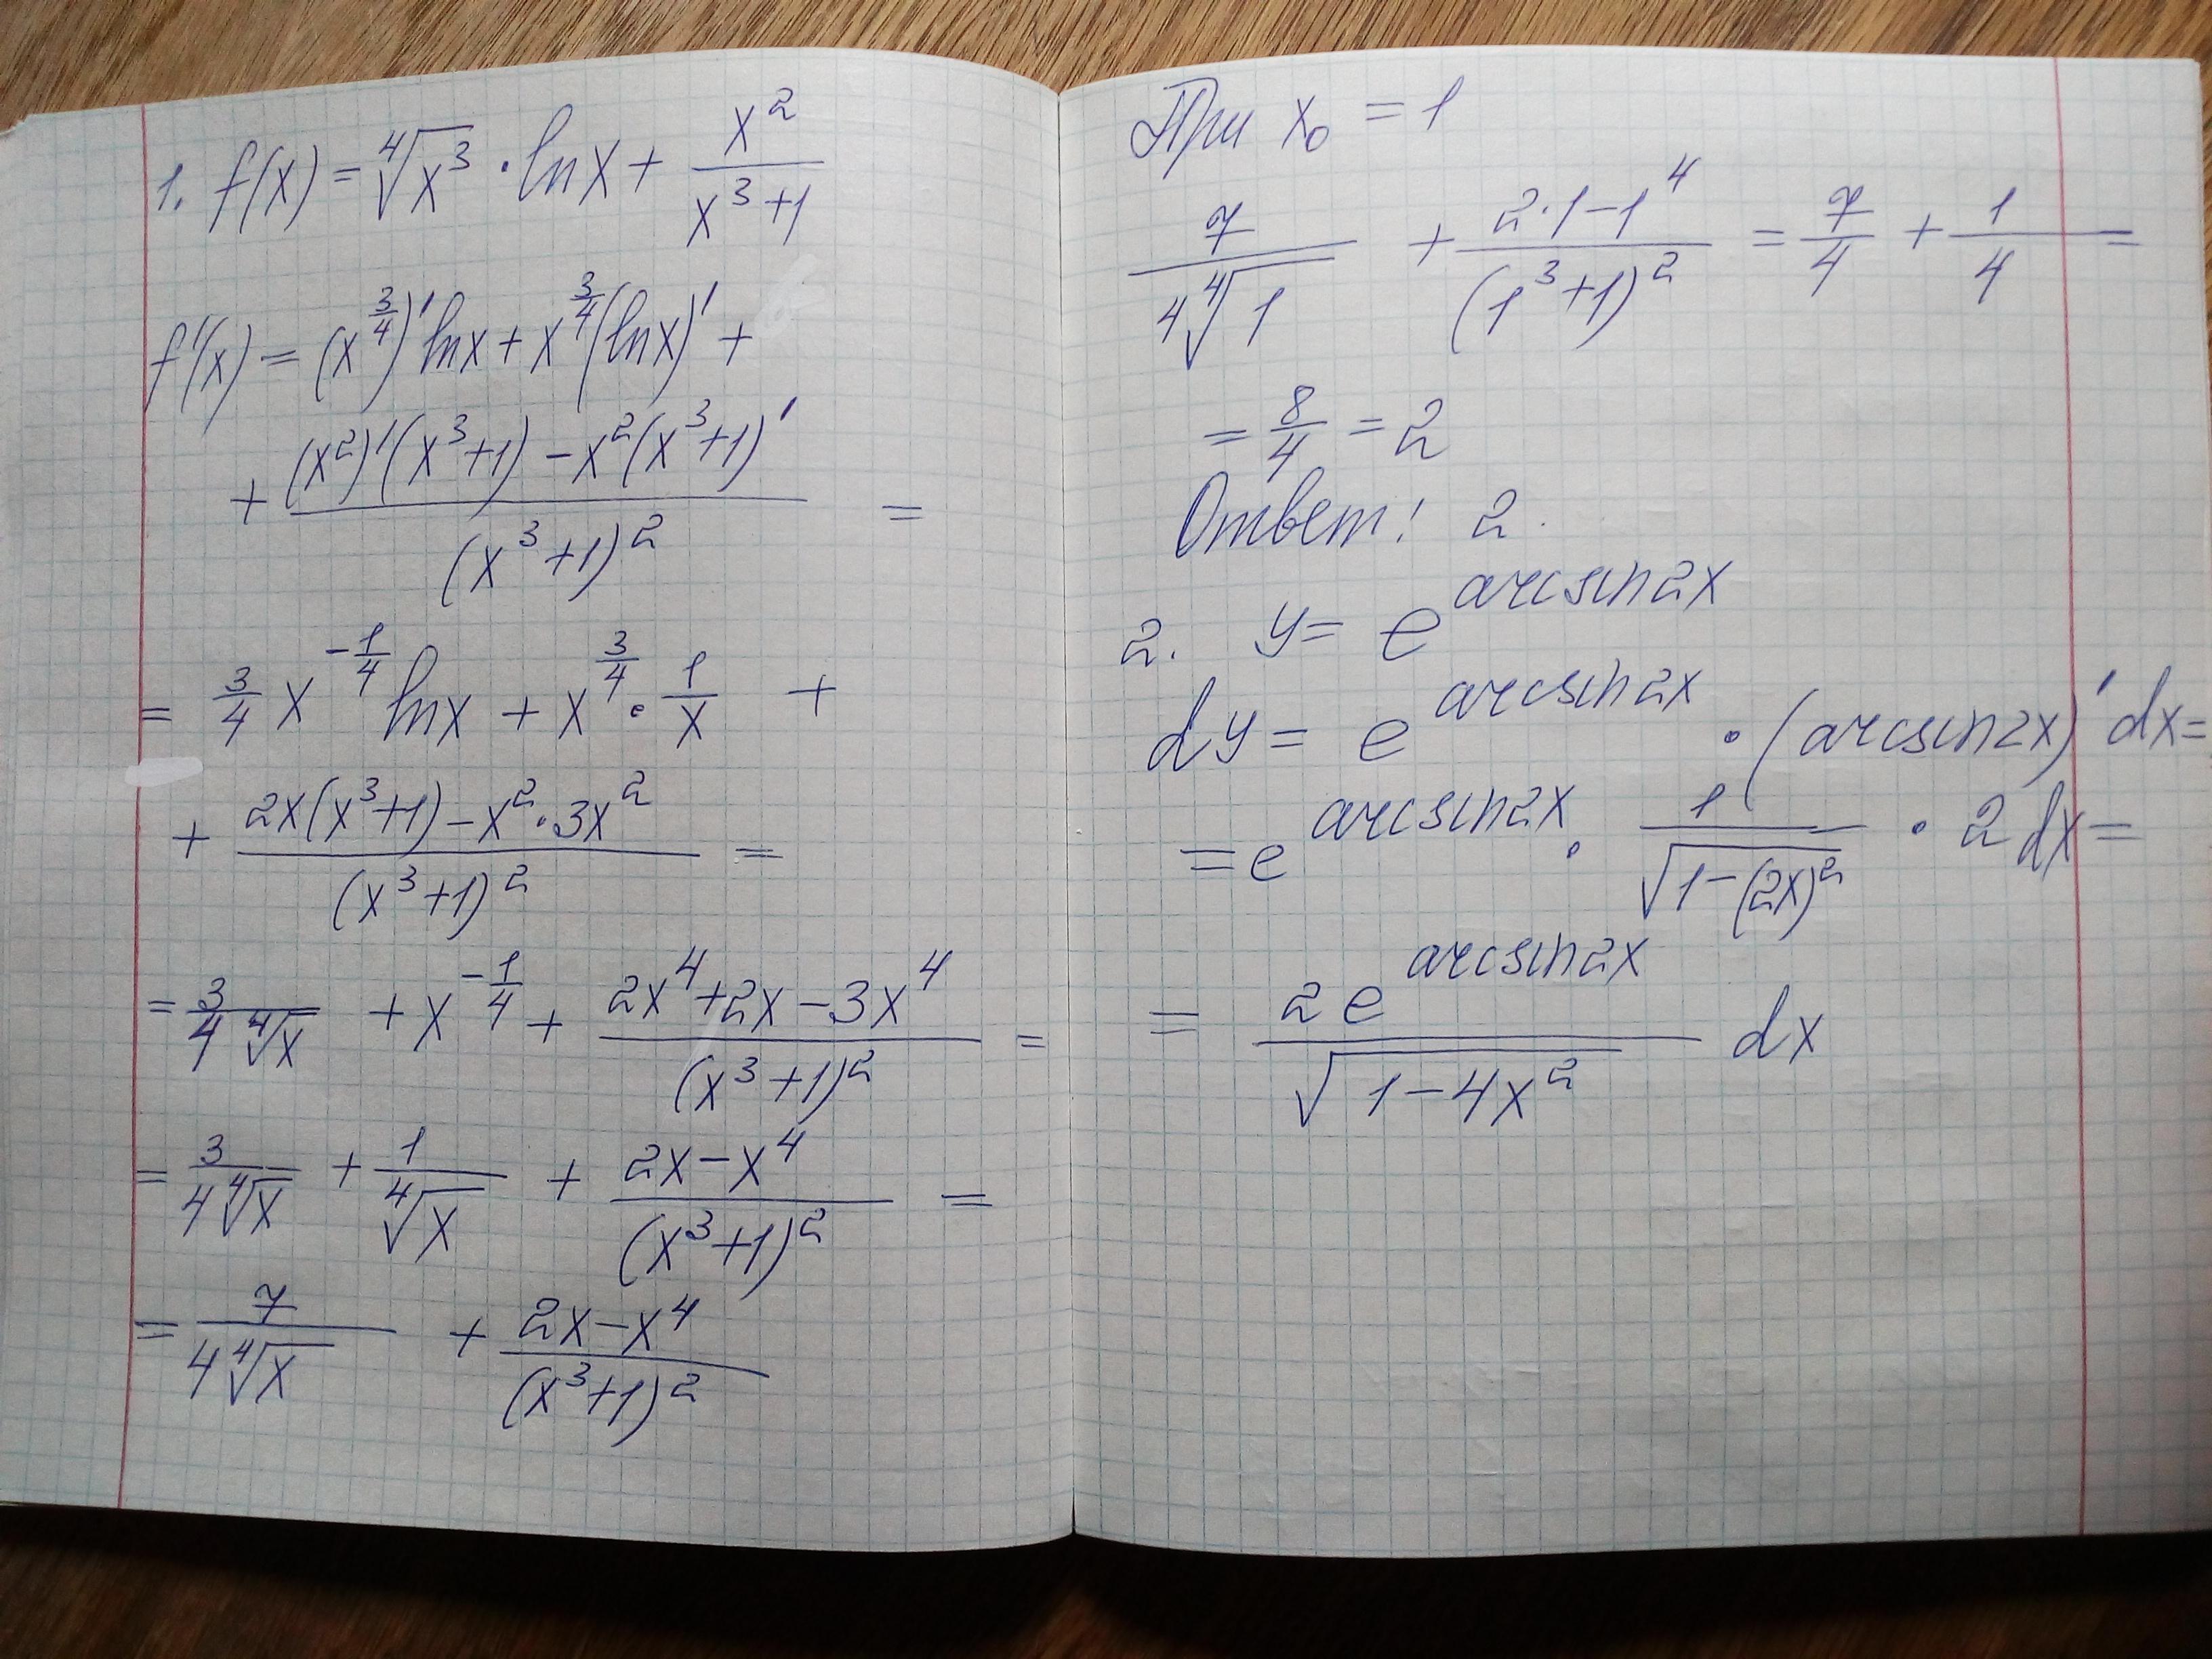 1. f(x) = ∜x³ · ln x + x²/(x³+1)
f'(x) = (x^(3/4))' ln x + x^(3/4) (ln x)' +
+ ((x²)'(x³+1) − x²(x³+1)')/(x³+1)² =
= 3/4 x^(−1/4) ln x + x^(3/4) · 1/x +
+ (2x(x³+1) − x² · 3x²)/(x³+1)² =
= 3/(4∜x) + x^(−1/4) + (2x⁴+2x−3x⁴)/(x³+1)² =
= 3/(4∜x) + 1/∜x + (2x−x⁴)/(x³+1)² =
= 7/(4∜x) + (2x−x⁴)/(x³+1)²
При x₀ = 1
7/(4∜1) + (2·1−1⁴)/(1³+1)² = 7/4 + 1/4 =
= 8/4 = 2
Ответ: 2.
2. y = e^(arcsin2x)
dy = e^(arcsin2x) · (arcsin2x)' dx =
= e^(arcsin2x) · 1/√(1−(2x)²) · 2dx =
= 2e^(arcsin2x)/√(1−4x²) dx